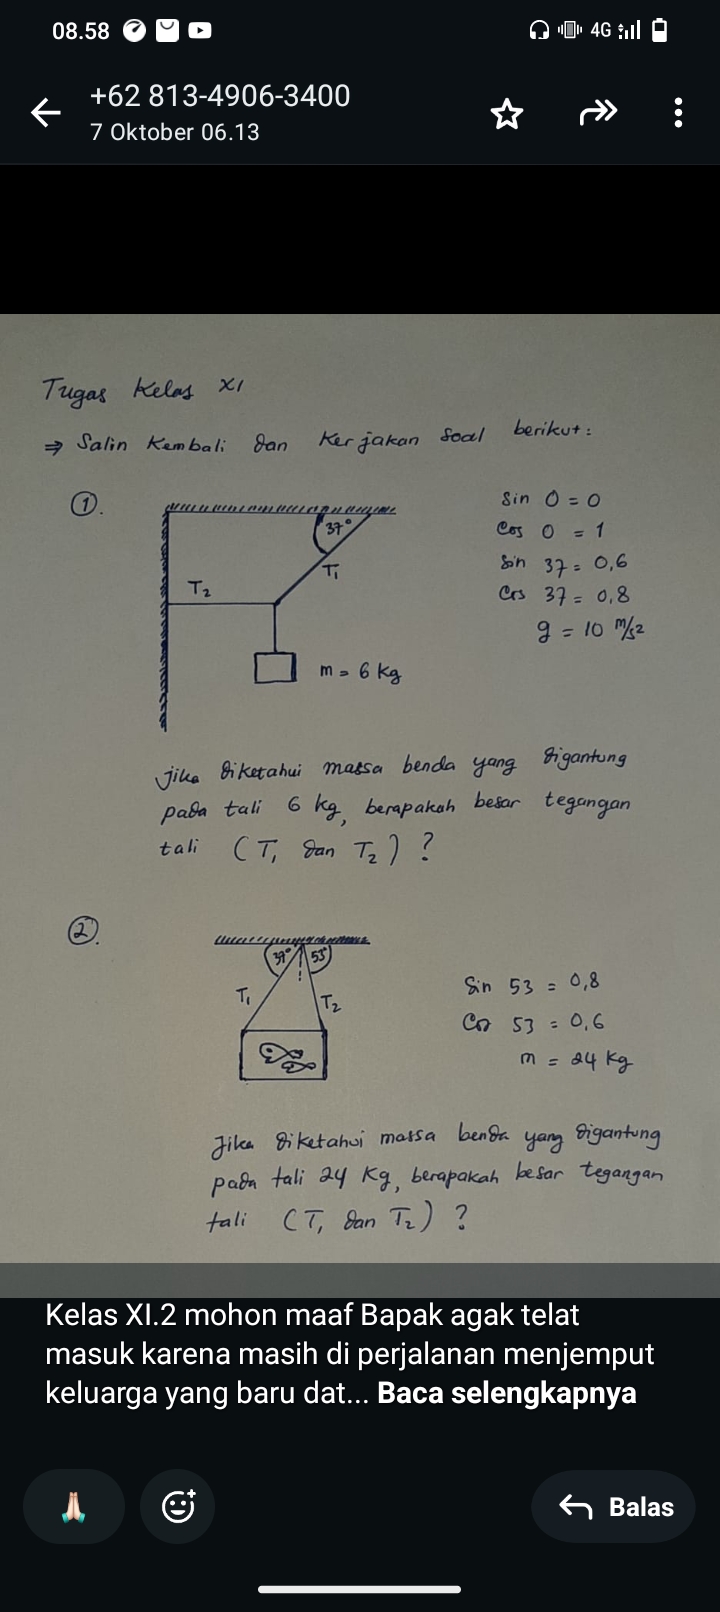 08.58
4G
+62 813-4906-3400
7 Oktober 06.13
Tugas Kelas XI
⇒ Salin Kembali dan Kerjakan Soal berikut:
①.
37°
T₁
T₂
m = 6 kg
Sin 0 = 0
Cos 0 = 1
Sin 37 = 0,6
Cos 37 = 0,8
g = 10 m/s²
Jika diketahui massa benda yang digantung
pada tali 6 kg, berapakah besar tegangan
tali (T₁ dan T₂) ?
②.
37° 53°
T₁ T₂
Sin 53 = 0,8
Cos 53 = 0,6
m = 24 kg
Jika diketahui massa benda yang digantung
pada tali 24 Kg, berapakah besar tegangan
tali (T₁ dan T₂) ?
Kelas XI.2 mohon maaf Bapak agak telat
masuk karena masih di perjalanan menjemput
keluarga yang baru dat... Baca selengkapnya
Balas